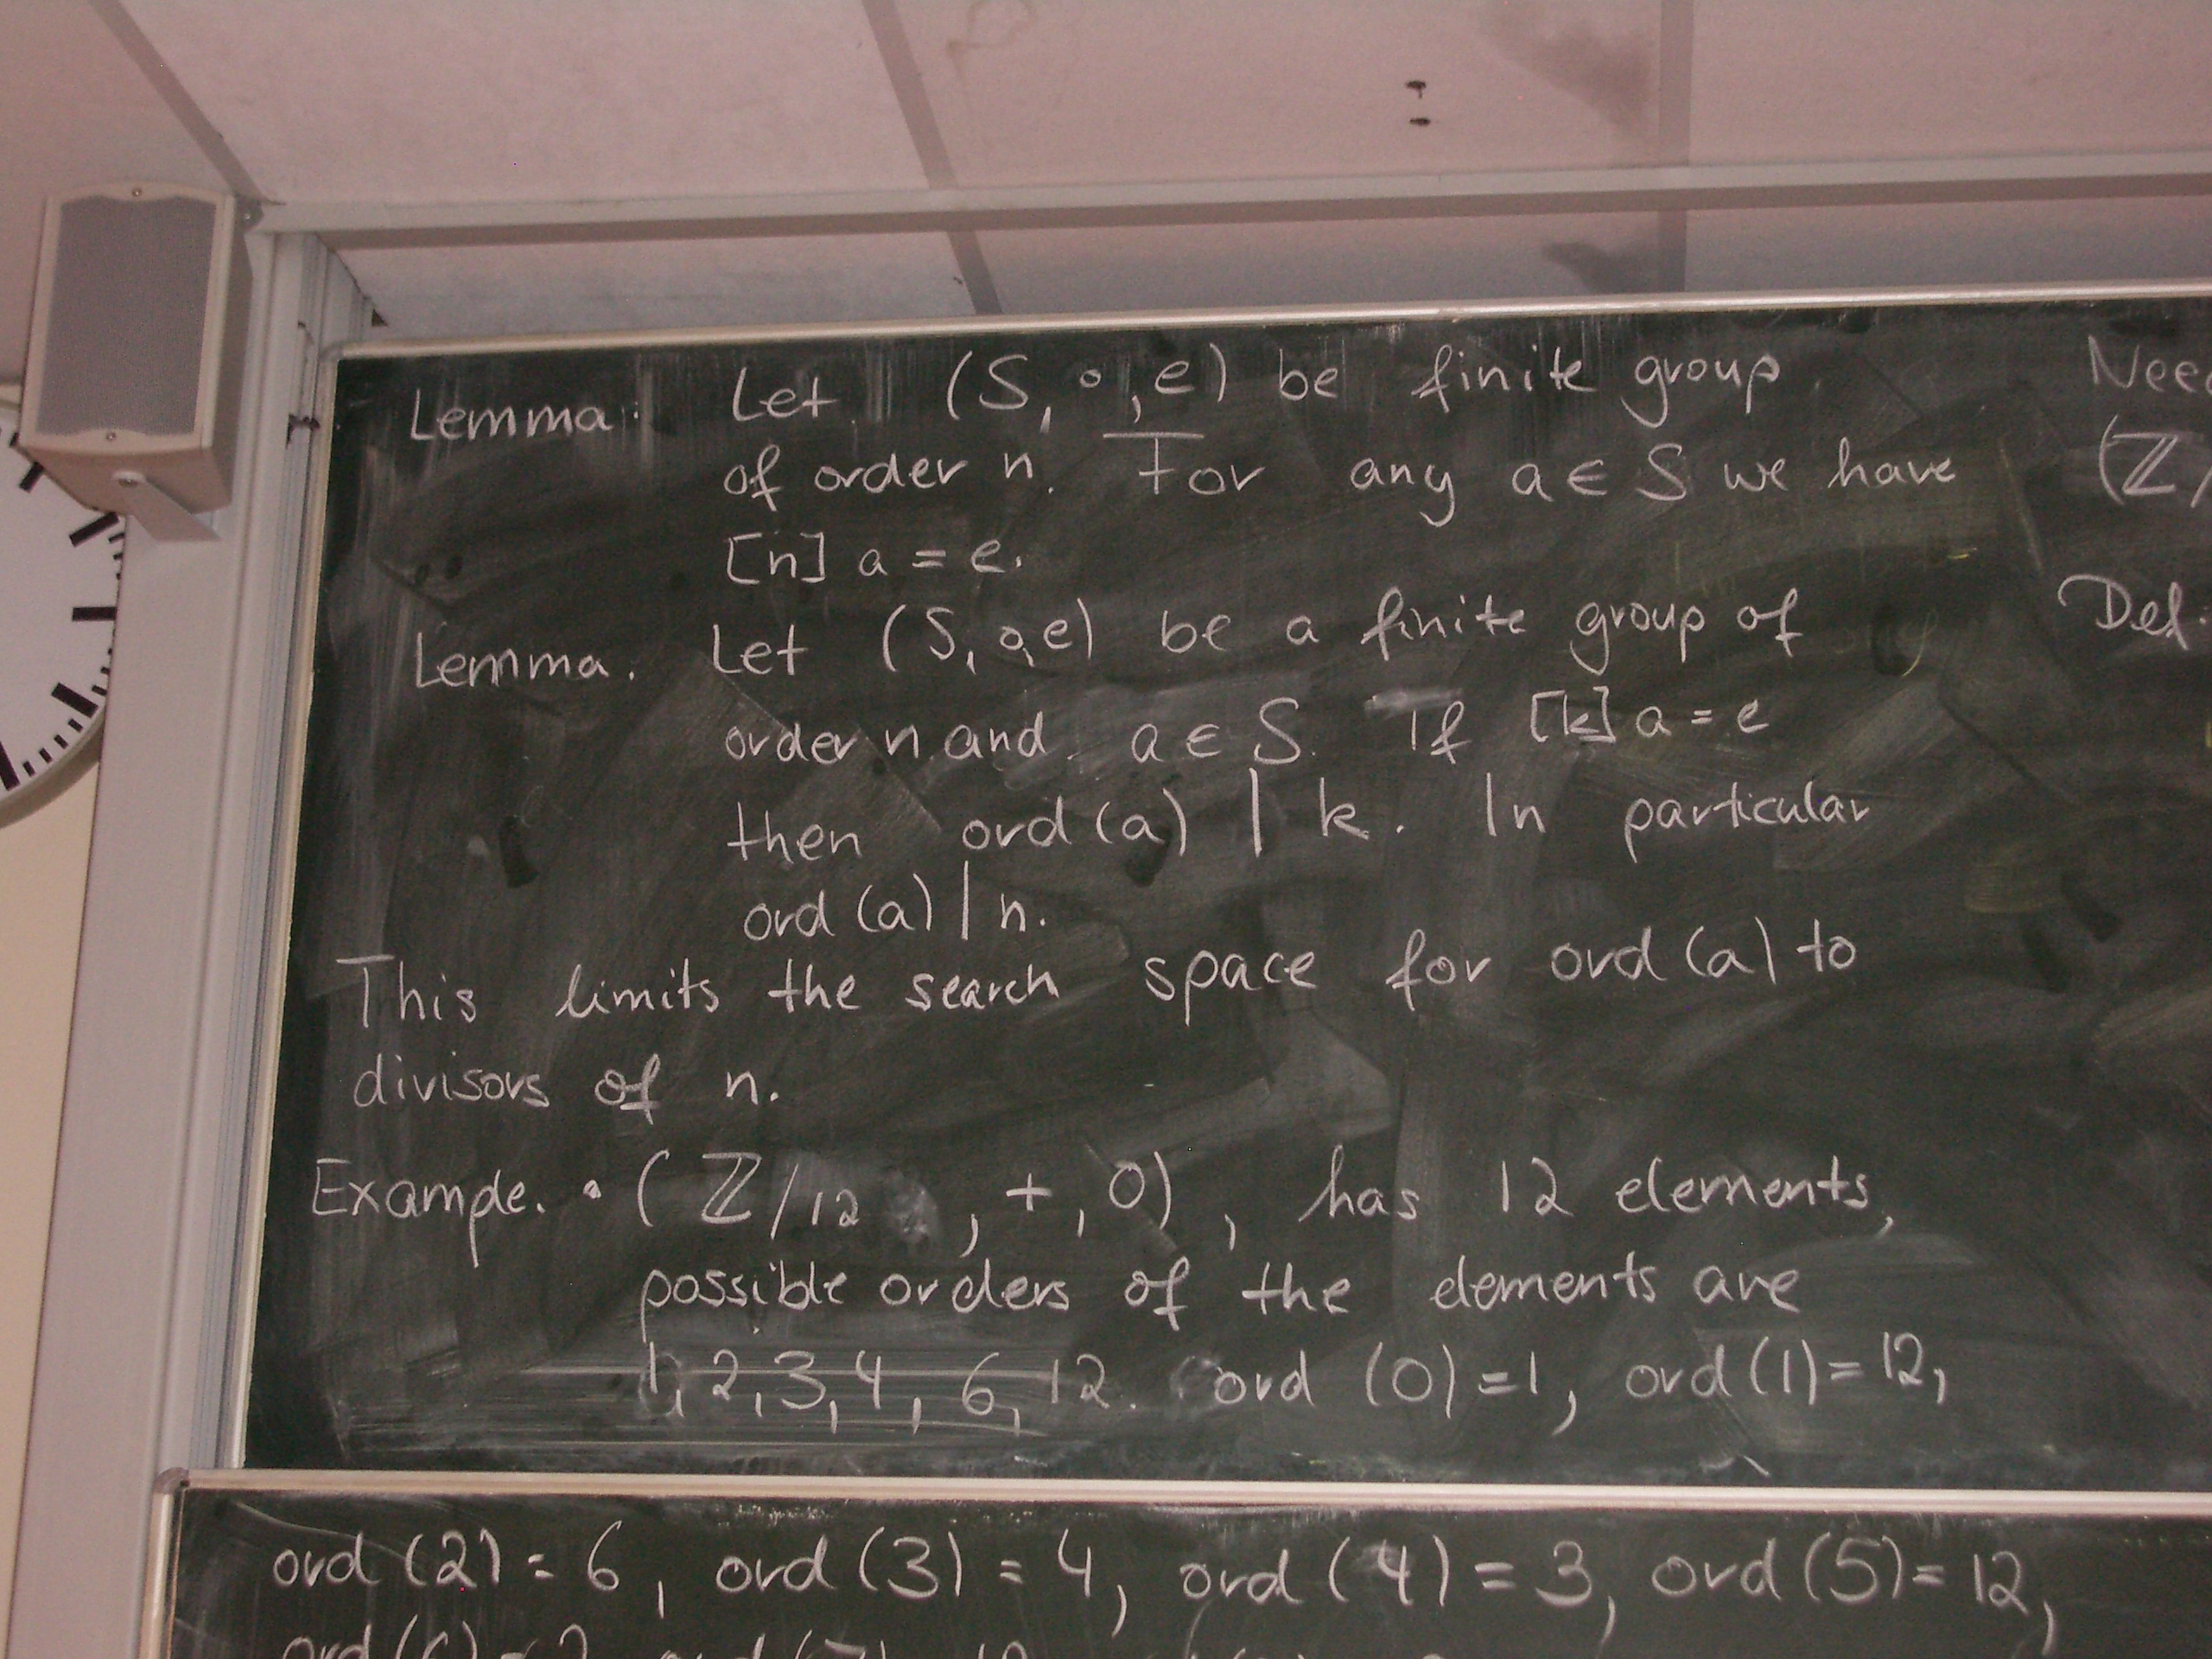 Lemma. Let (S, ∘, e) be finite group
of order n. For any a ∈ S we have
[n] a = e.
Lemma. Let (S, ∘, e) be a finite group of
order n and a ∈ S. If [k] a = e
then ord (a) | k. In particular
ord (a) | n.
This limits the search space for ord (a) to
divisors of n.
Example. • (ℤ/12, +, 0), has 12 elements,
possible orders of the elements are
1, 2, 3, 4, 6, 12. ord (0) = 1, ord (1) = 12,
ord (2) = 6, ord (3) = 4, ord (4) = 3, ord (5) = 12,
(ℤ/
Def.